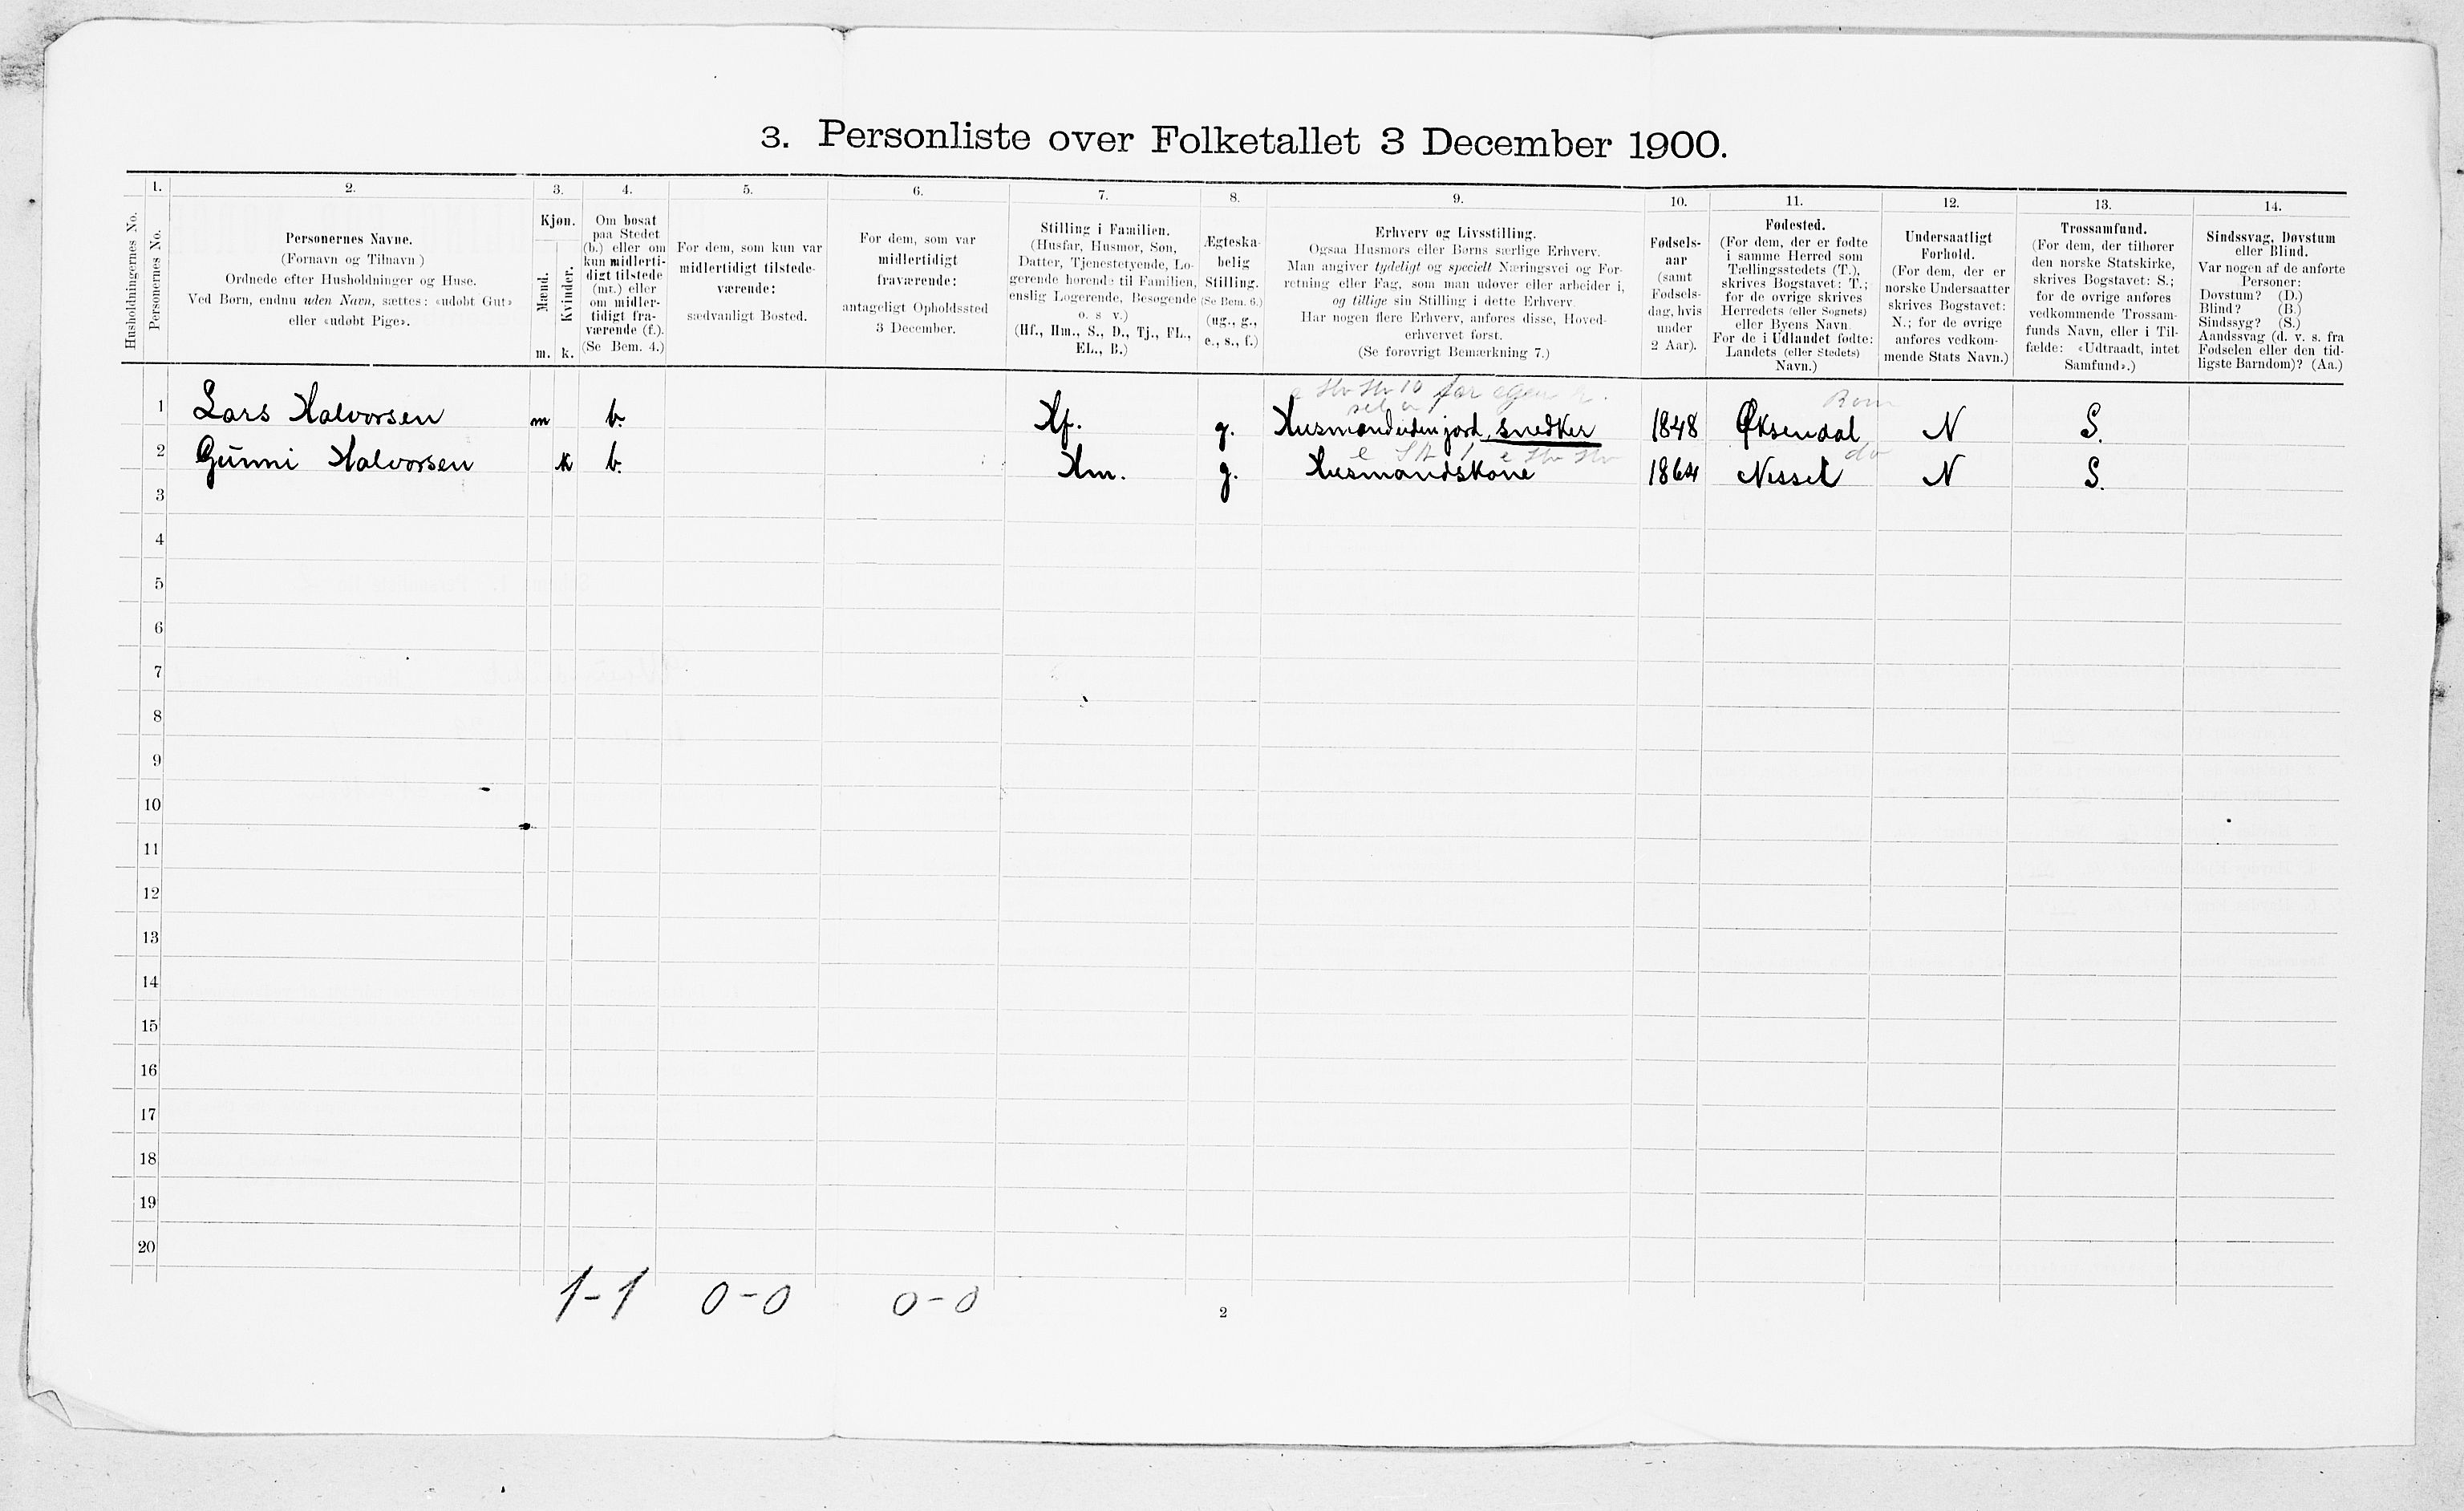 3. Personliste over Folketallet 3 December 1900.
1. 2. 3. 4. 5. 6. 7. 8. 9. 10. 11. 12. 13. 14.
Husholdningernes No.
Personernes No.
Personernes Navne.
(Fornavn og Tilnavn.)
Ordnede efter Husholdninger og Huse.
Ved Børn, endnu uden Navn, sættes: «udøbt Gut»
eller «udøbt Pige».
Kjøn.
Mænd.
Kvinder.
m. k.
Om bosat
paa Stedet
(b.) eller om
kun midlerti-
digt tilstede
(mt.) eller
om midler-
tidigt fra-
værende (f.).
(Se Bem. 4.)
For dem, som kun var
midlertidigt tilstede-
værende:
sædvanligt Bosted.
For dem, som var
midlertidigt
fraværende:
antageligt Opholdssted
3 December.
Stilling i Familien.
(Husfar, Husmor, Søn,
Datter, Tjenestetyende, Lo-
gerende hørende til Familien,
enslig Logerende, Besøgende
o. s v.)
(Hf., Hm., S., D., Tj., FL.,
EL., B.)
Ægteska-
belig
Stilling.
(Se Bem. 6.)
(ug., g.,
e., s., f.)
Erhverv og Livsstilling.
Ogsaa Husmors eller Børns særlige Erhverv.
Man angiver tydeligt og specielt Næringsvei og For-
retning eller Fag, som man udøver eller arbeider i,
og tillige sin Stilling i dette Erhverv.
Har nogen flere Erhverv, anføres disse, Hoved-
erhvervet først.
(Se forøvrigt Bemærkning 7.)
Fødsels-
aar
(samt
Fødsels-
dag, hvis
under
2 Aar).
Fødested.
(For dem, der er fødte
i samme Herred som
Tællingsstedets (T.),
skrives Bogstavet: T.;
for de øvrige skrives
Herredets (eller Sognets)
eller Byens Navn.
For de i Udlandet fødte:
Landets (eller Stedets)
Navn.)
Undersaatligt
Forhold.
(For dem, der er
norske Undersaatter
skrives Bogstavet:
N.; for de øvrige
anføres vedkom-
mende Stats Navn.)
Trossamfund.
(For dem, der tilhører
den norske Statskirke,
skrives Bogstavet: S.;
for de øvrige anføres
vedkommende Trossam-
funds Navn, eller i Til-
fælde: «Udtraadt, intet
Samfund».)
Sindssvag, Døvstum
eller Blind.
Var nogen af de anførte
Personer:
Døvstum? (D.)
Blind? (B.)
Sindssyg? (S.)
Aandssvag (d. v. s. fra
Fødselen eller den tid-
ligste Barndom)? (Aa.)
for egen
Rom
1 Lars Halvorsen m b. Hf. g. Husmand uden jord, snedker 1848 Øksendal N S.
do
2 Gunni Halvorsen k b. Hm. g. Husmandskone 1864 Nesset N S.
3
4
5
6
7
8
9
10
11
12
13
14
15
16
17
18
19
20
1-1 0-0 0-0
2